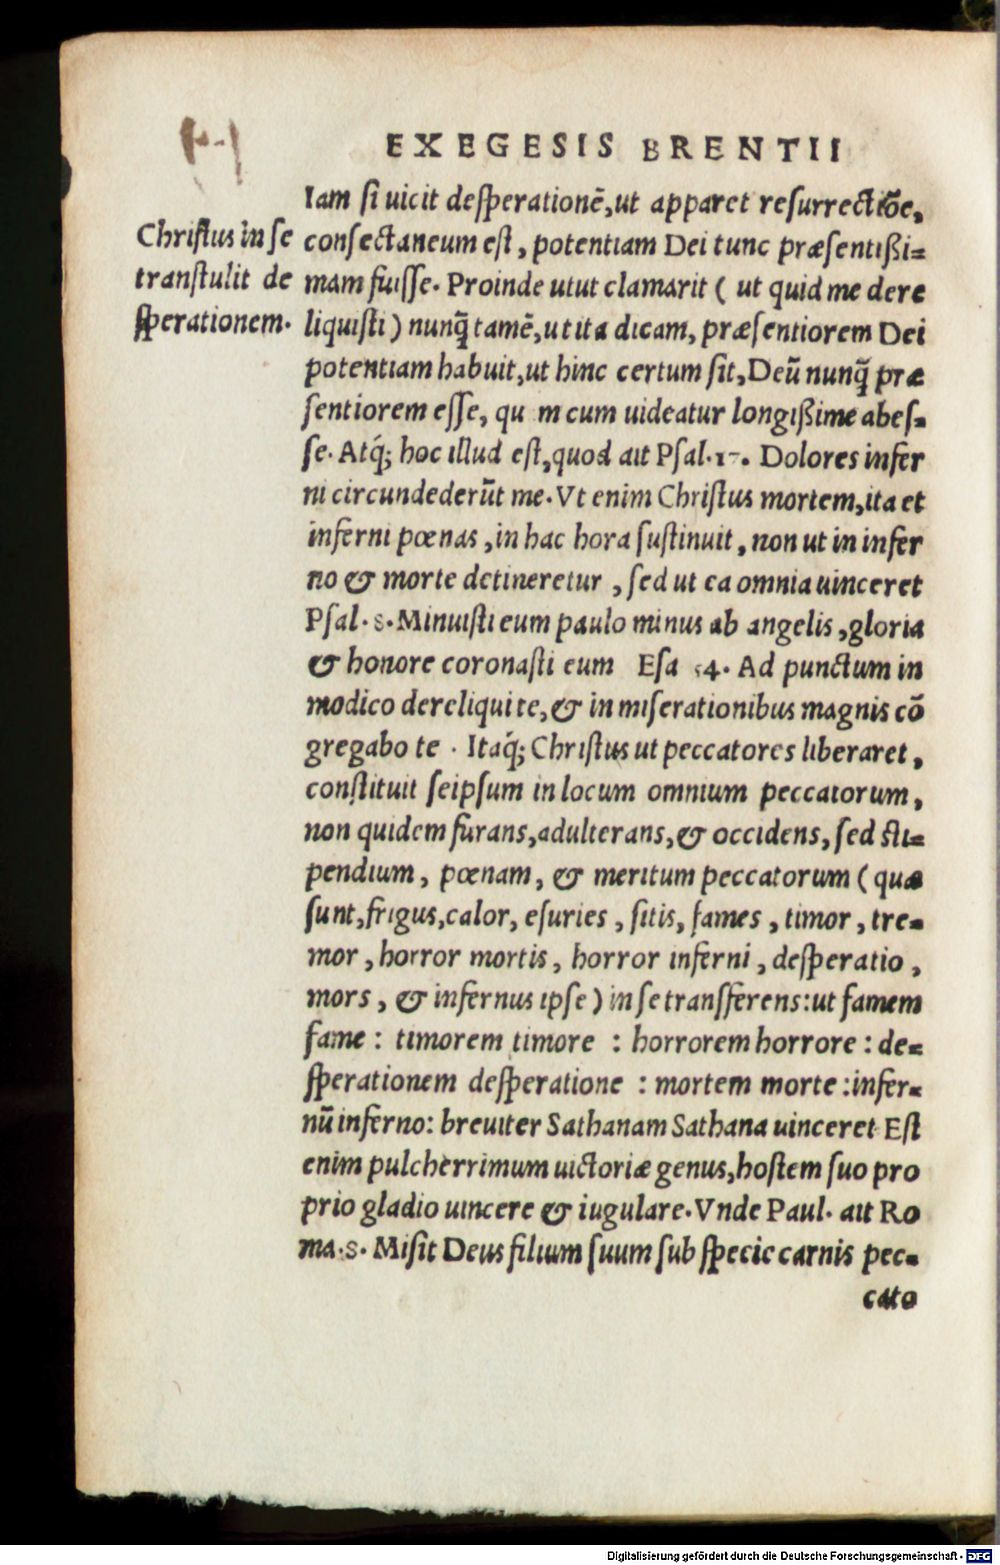 EXEGESIS BRENTII
Iam ſi uicit deſperationē, ut apparet reſurrectiōe,
Chriſtus in ſe
tranſtulit de
ſperationem.
conſectaneum eſt, potentiam Dei tunc præſentißi=
mam fuiſſe. Proinde utut clamarit ( ut quid me dere
liquiſti ) nunq̃ tamē, ut ita dicam, præſentiorem Dei
potentiam habuit, ut hinc certum ſit, Deū nunq̃ præ
ſentiorem eſſe, qu m cum uideatur longißime abeſ=
ſe. Atq́; hoc illud eſt, quod ait Pſal. 17. Dolores infer
ni circundederūt me. Vt enim Chriſtus mortem, ita et
inferni pœnas, in hac hora ſuſtinuit, non ut in infer
no & morte detineretur, ſed ut ea omnia uinceret
Pſal. 8. Minuiſti eum paulo minus ab angelis, gloria
& honore coronaſti eum Eſa 54. Ad punctum in
modico dereliqui te, & in miſerationibus magnis cō
gregabo te. Itaq́; Chriſtus ut peccatores liberaret,
conſtituit ſeipſum in locum omnium peccatorum,
non quidem furans, adulterans, & occidens, ſed ſti=
pendium, pœnam, & meritum peccatorum ( quæ
ſunt, frigus, calor, eſuries, ſitis, fames, timor, tre=
mor, horror mortis, horror inferni, deſperatio,
mors, & infernus ipſe ) in ſe transferens: ut famem
fame : timorem timore : horrorem horrore : de=
ſperationem deſperatione : mortem morte : infer=
nū inferno: breuiter Sathanam Sathana uinceret Eſt
enim pulcherrimum uictoriæ genus, hoſtem ſuo pro
prio gladio uincere & iugulare. Vnde Paul. ait Ro
ma. 8. Miſit Deus filium ſuum ſub ſpecie carnis pec=
cato
Digitalisierung gefördert durch die Deutsche Forschungsgemeinschaft - DFG